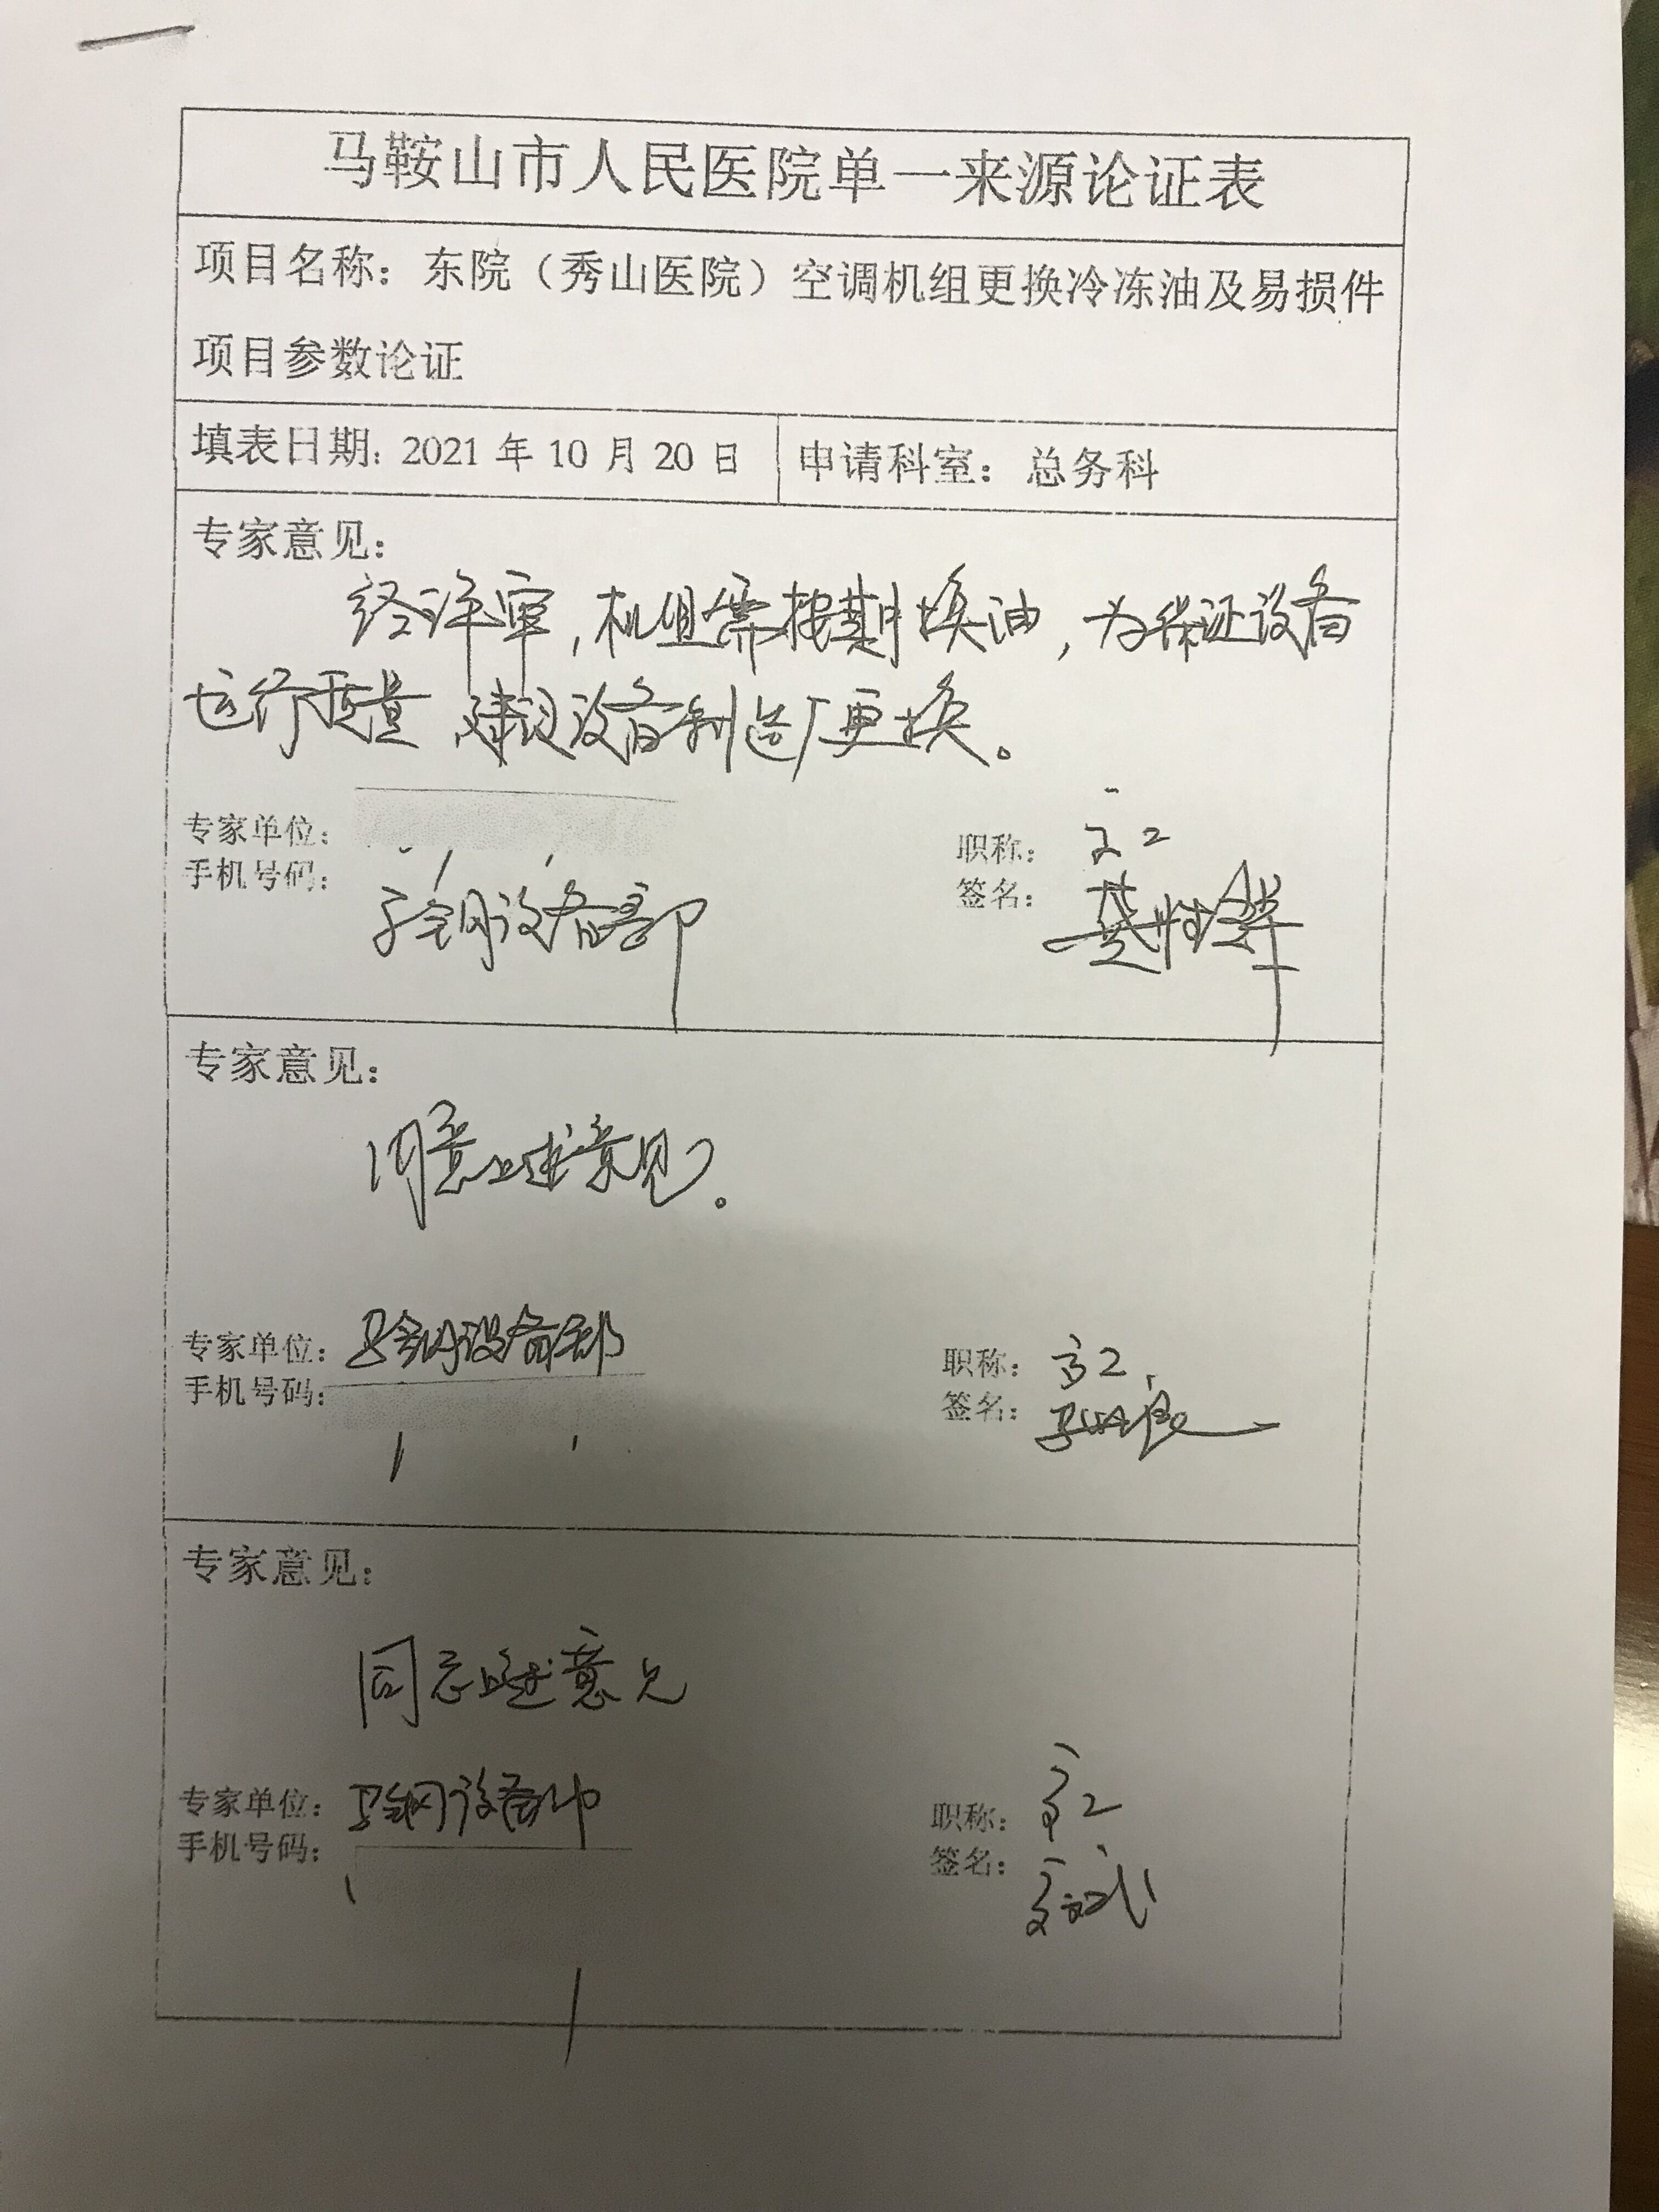 马鞍山市人民医院单一来源论证表
项目名称：东院（秀山医院）空调机组更换冷冻油及易损件
项目参数论证
填表日期：2021 年 10 月 20 日 申请科室：总务科
专家意见：
经评审，机组需按期换油，为保证设备
运行质量 建议设备制造厂更换。
专家单位： 职称：高工
手机号码： 签名：
马钢设备部
专家意见：
同意上述意见。
专家单位：马钢设备部 职称：高工
手机号码： 签名：
专家意见：
同意上述意见
专家单位：马钢设备部 职称：高工
手机号码： 签名：